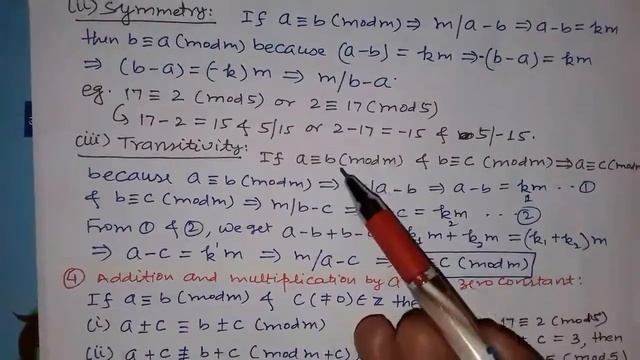 (ii) Symmetry: If a ≡ b (mod m) ⇒ m/a-b ⇒ a-b = km
then b ≡ a (mod m) because (a-b) = km ⇒ -(b-a) = km
⇒ (b-a) = (-k)m ⇒ m/b-a.
eg. 17 ≡ 2 (mod 5) or 2 ≡ 17 (mod 5)
↳ 17-2 = 15 & 5/15 or 2-17 = -15 & 5/-15.
(iii) Transitivity: If a ≡ b (mod m) & b ≡ c (mod m) ⇒ a ≡ c (mod m
because a ≡ b (mod m) ⇒ /a-b ⇒ a-b = k₁m ..①
& b ≡ c (mod m) ⇒ m/b-c = c = k₂m ..②
From ① & ②, we get a-b+b- k₁m + k₂m = (k₁+k₂)m
⇒ a-c = k'm ⇒ m/a-c ⇒ ≡ c (mod m)
④ Addition and multiplication by a zero constant:
If a ≡ b (mod m) & c (≠0) ∈ Z the
(i) a ± c ≡ b ± c (mod m) 17 ≡ 2 (mod 5)
(ii) a + c ≢ b + c (mod m + c) + c = 3, then